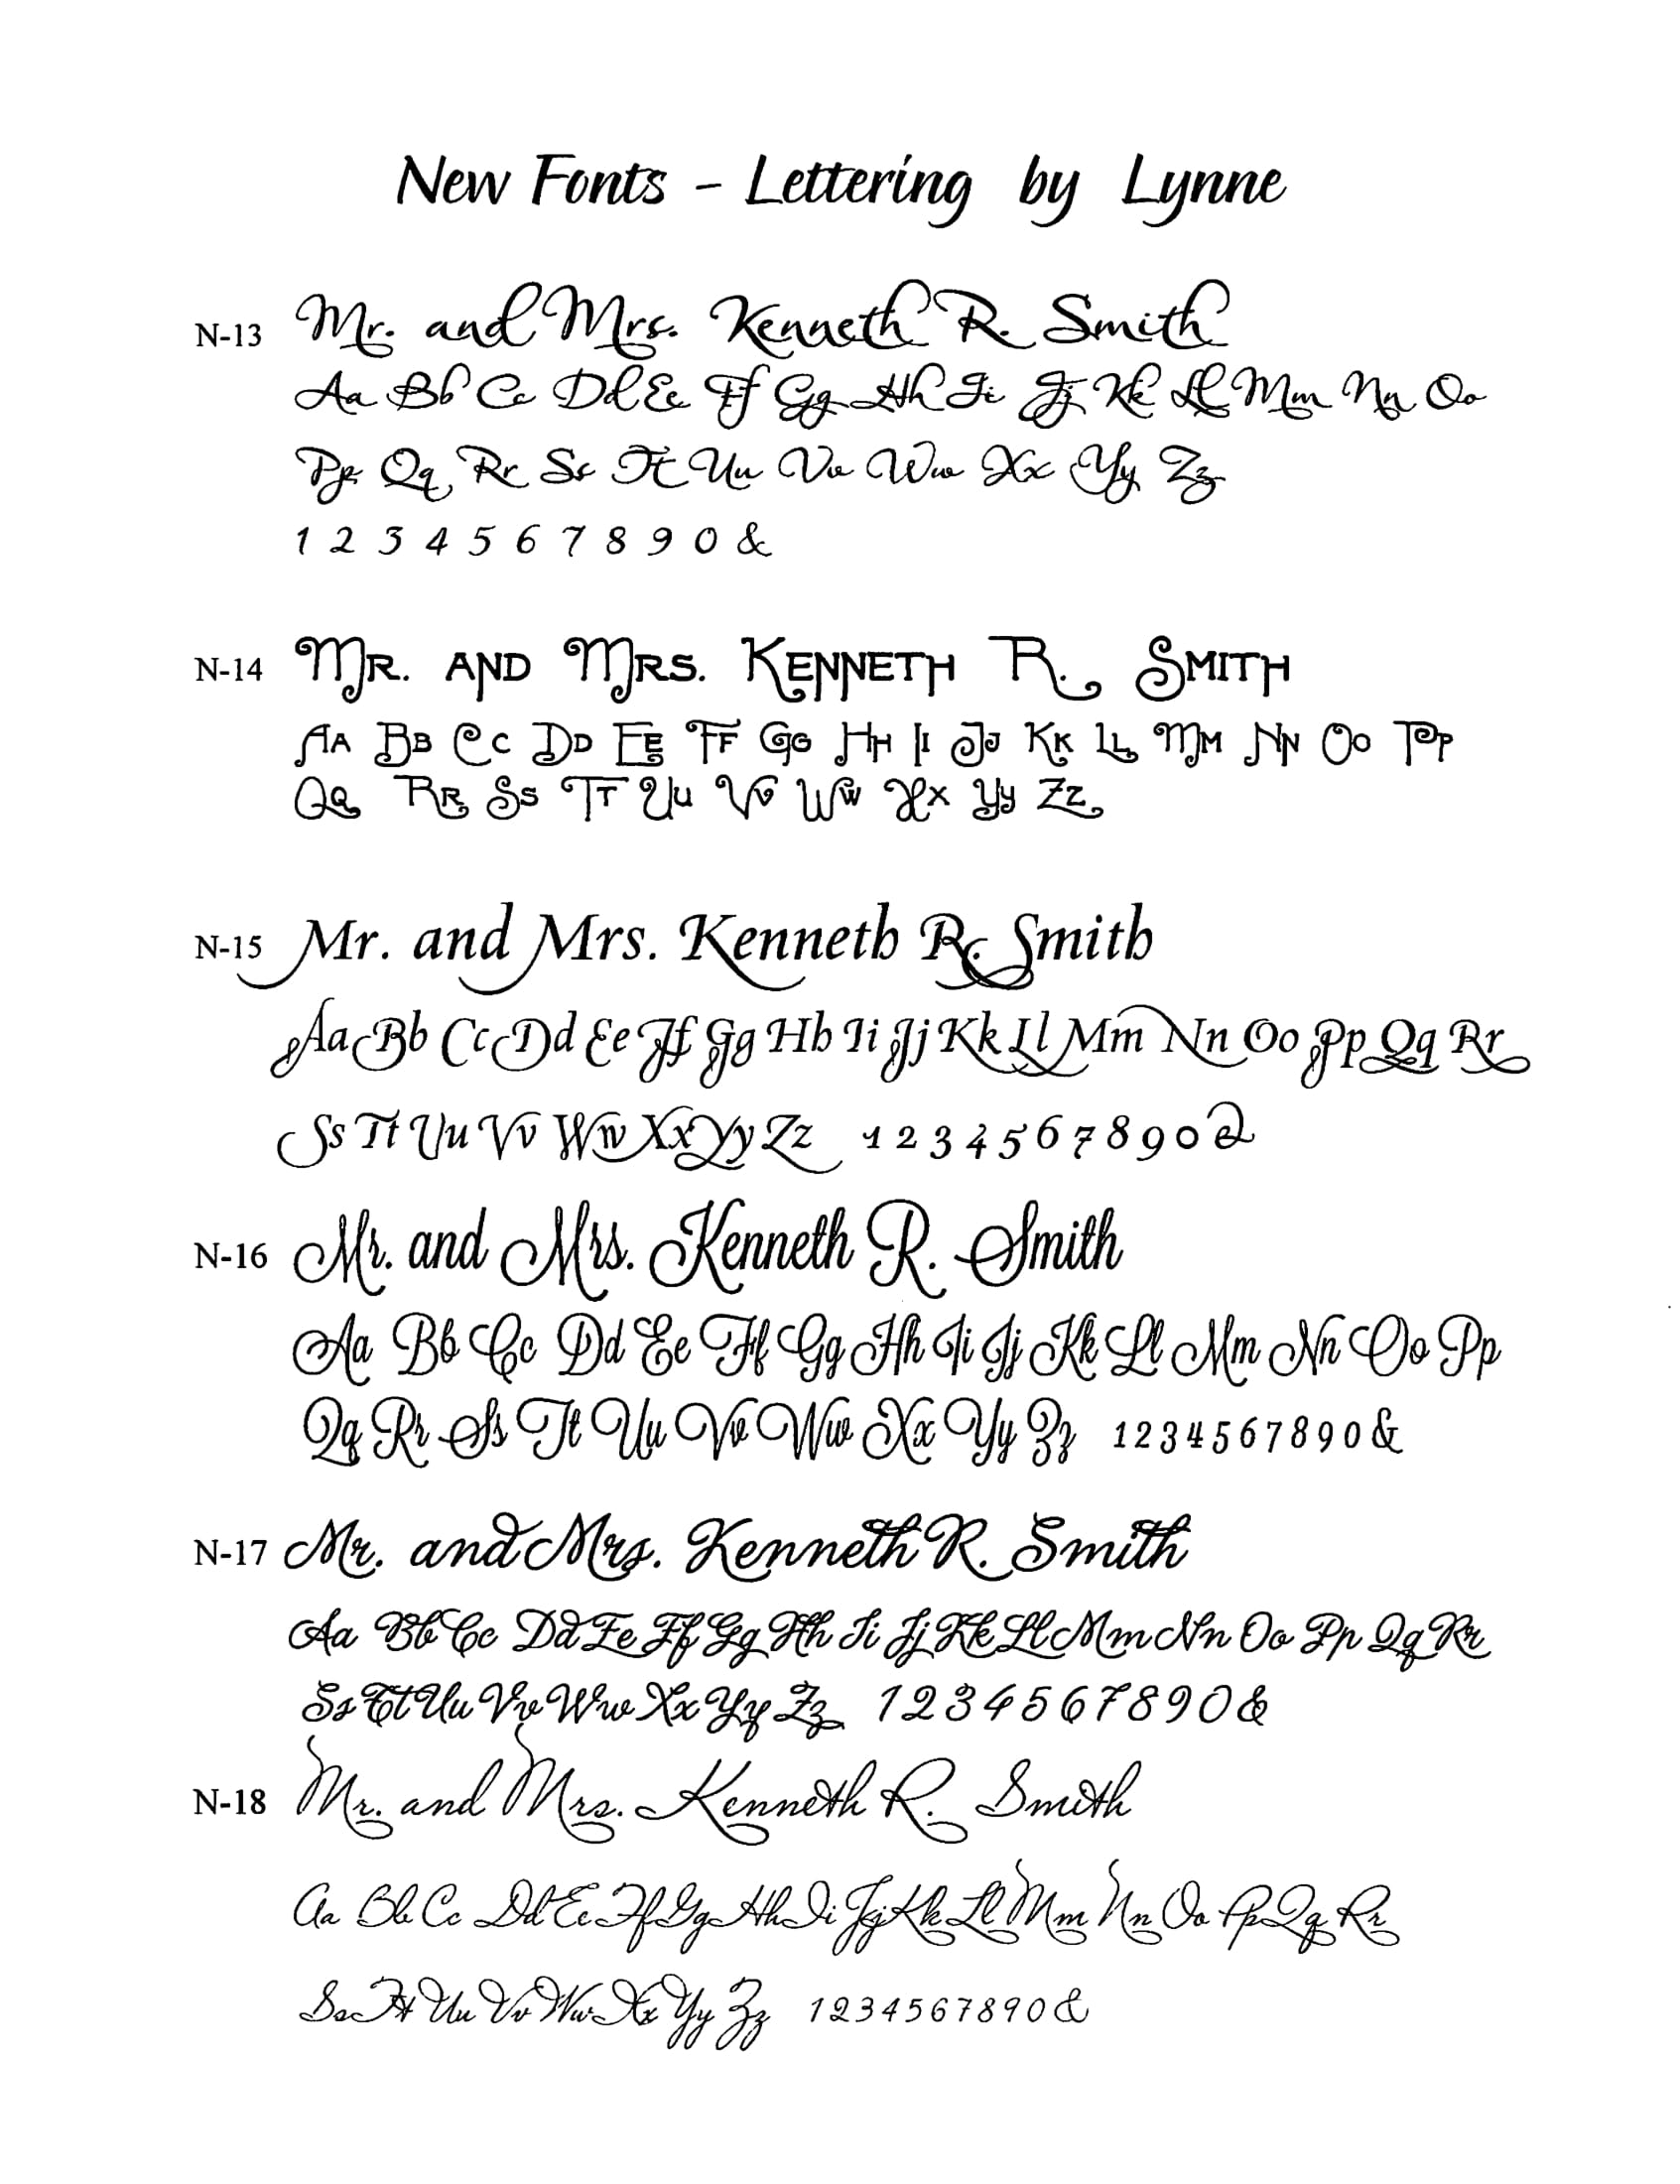 New Fonts - Lettering by Lynne
N-13 Mr. and Mrs. Kenneth R. Smith
Aa Bb Cc Dd Ee Ff Gg Hh Ii Jj Kk Ll Mm Nn Oo
Pp Qq Rr Ss Tt Uu Vv Ww Xx Yy Zz
1 2 3 4 5 6 7 8 9 0 &
N-14 MR. AND MRS. KENNETH R. SMITH
AA BB CC DD EE FF GG HH II JJ KK LL MM NN OO PP
QQ RR SS TT UU VV WW XX YY ZZ
N-15 Mr. and Mrs. Kenneth R. Smith
Aa Bb Cc Dd Ee Ff Gg Hh Ii Jj Kk Ll Mm Nn Oo Pp Qq Rr
Ss Tt Uu Vv Ww Xx Yy Zz 1 2 3 4 5 6 7 8 9 0 &
N-16 Mr. and Mrs. Kenneth R. Smith
Aa Bb Cc Dd Ee Ff Gg Hh Ii Jj Kk Ll Mm Nn Oo Pp
Qq Rr Ss Tt Uu Vv Ww Xx Yy Zz 1 2 3 4 5 6 7 8 9 0 &
N-17 Mr. and Mrs. Kenneth R. Smith
Aa Bb Cc Dd Ee Ff Gg Hh Ii Jj Kk Ll Mm Nn Oo Pp Qq Rr
Ss Tt Uu Vv Ww Xx Yy Zz 1 2 3 4 5 6 7 8 9 0 &
N-18 Mr. and Mrs. Kenneth R. Smith
Aa Bb Cc Dd Ee Ff Gg Hh Ii Jj Kk Ll Mm Nn Oo Pp Qq Rr
Ss Tt Uu Vv Ww Xx Yy Zz 1 2 3 4 5 6 7 8 9 0 &